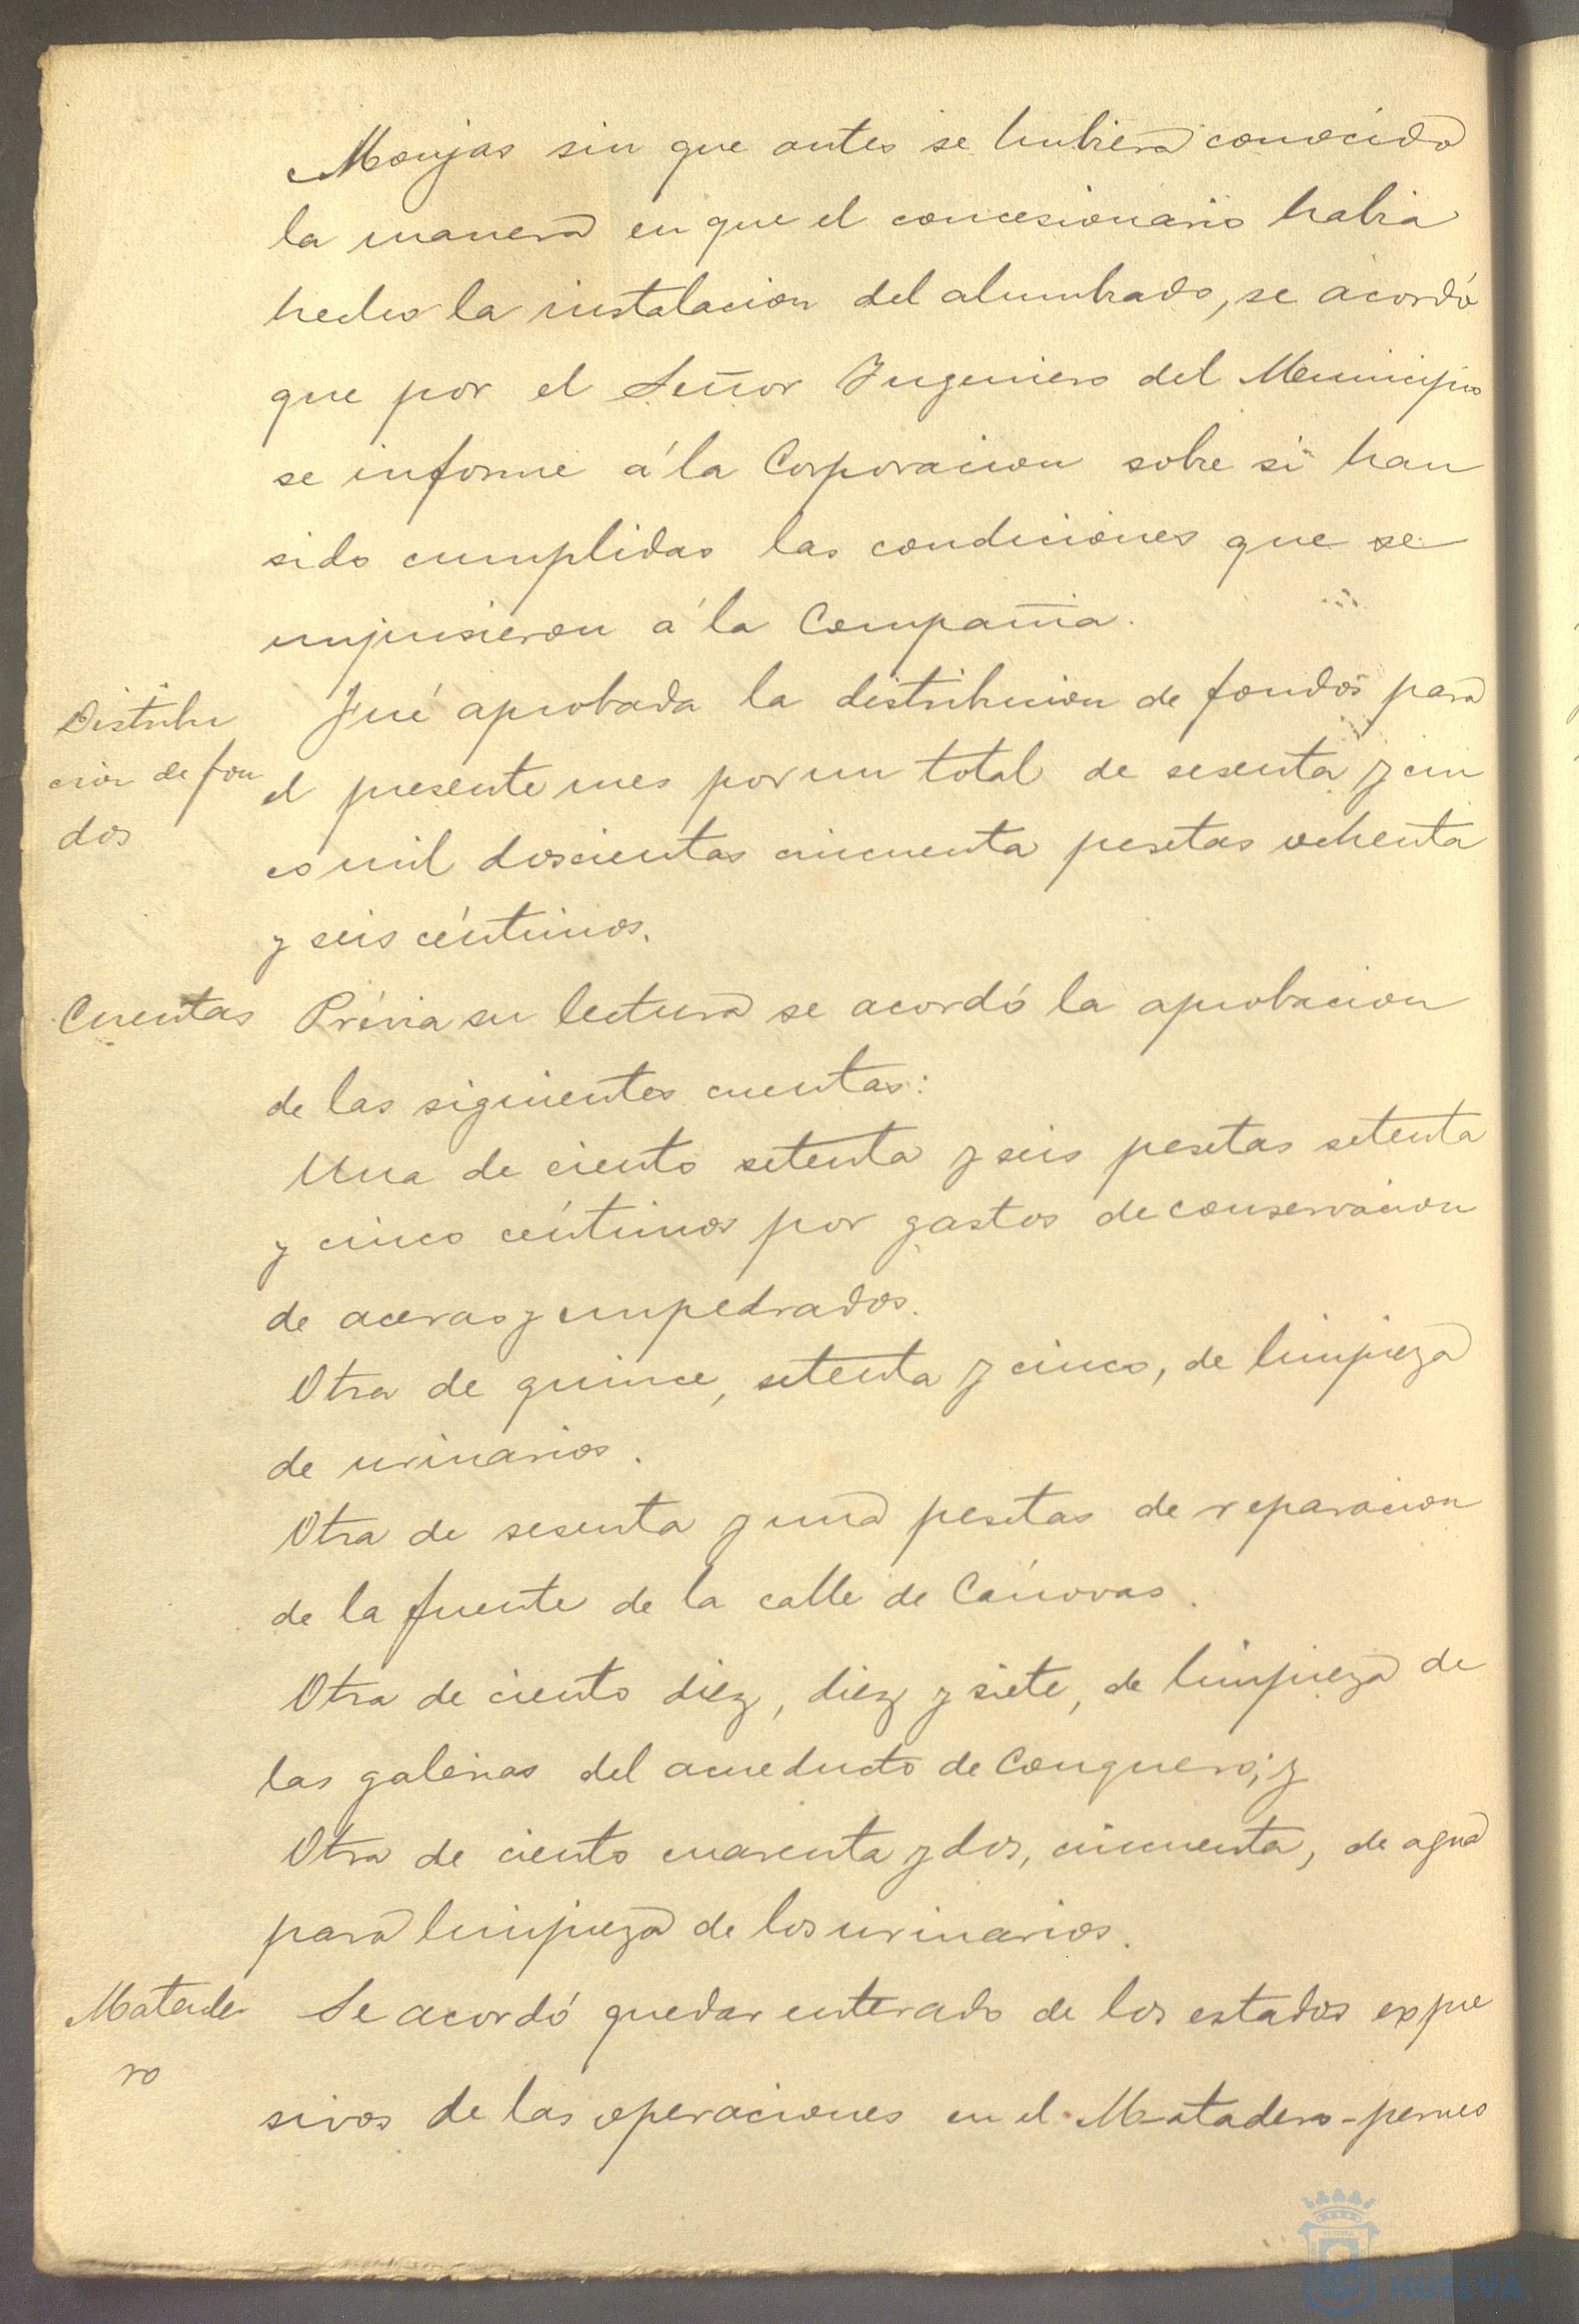 Monjas sin que antes se hubiera conocido
la manera en que el concesionario habia
hecho la instalacion del alumbrado, se acordó
que por el Señor Ingeniero del Municipio
se informe á la Corporacion sobre si han
sido cumplidas las condiciones que se
impusieron á la Compañia.
Distribu
cion de fon
dos
Fué aprobada la distribucion de fondos para
el presente mes por un total de sesenta y cin
co mil doscientas cincuenta pesetas ochenta
y seis céntimos.
Cuentas
Prévia su lectura se acordó la aprobacion
de las siguientes cuentas:
Una de ciento setenta y seis pesetas setenta
y cinco céntimos por gastos de conservacion
de aceras y empedrados.
Otra de quince, setenta y cinco, de limpieza
de urinarios.
Otra de sesenta y una pesetas de reparacion
de la fuente de la calle de Cánovas.
Otra de ciento diez, diez y siete, de limpieza de
las galerias del acueducto de Conquero; y
Otra de ciento cuarenta y dos, cincuenta, de agua
para limpieza de los urinarios.
Matade
ro
Se acordó quedar enterado de los estados expre
sivos de las operaciones en el Matadero-perneo
HUELVA